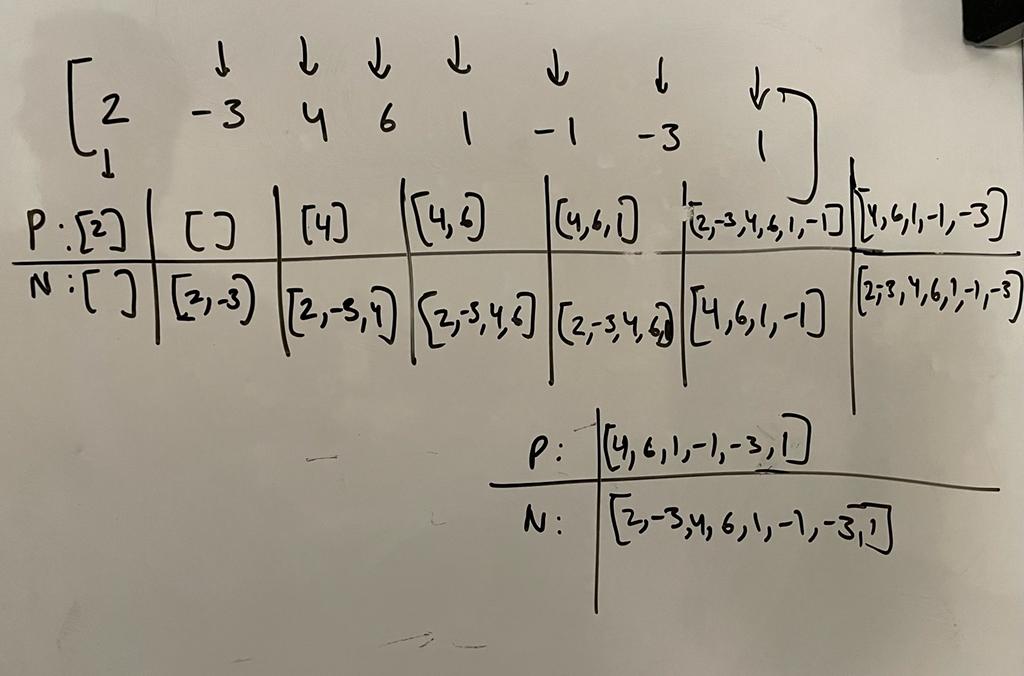 [ 2 -3 4 6 1 -1 -3 1 ]
P: [2] [ ] [4] [4,6] [4,6,1] [2,-3,4,6,1,-1] [4,6,1,-1,-3]
N: [ ] [2,-3] [2,-3,4] [2,-3,4,6] [2,-3,4,6,1] [4,6,1,-1] [2,-3,4,6,1,-1,-3]
P: [4,6,1,-1,-3,1]
N: [2,-3,4,6,1,-1,-3,1]